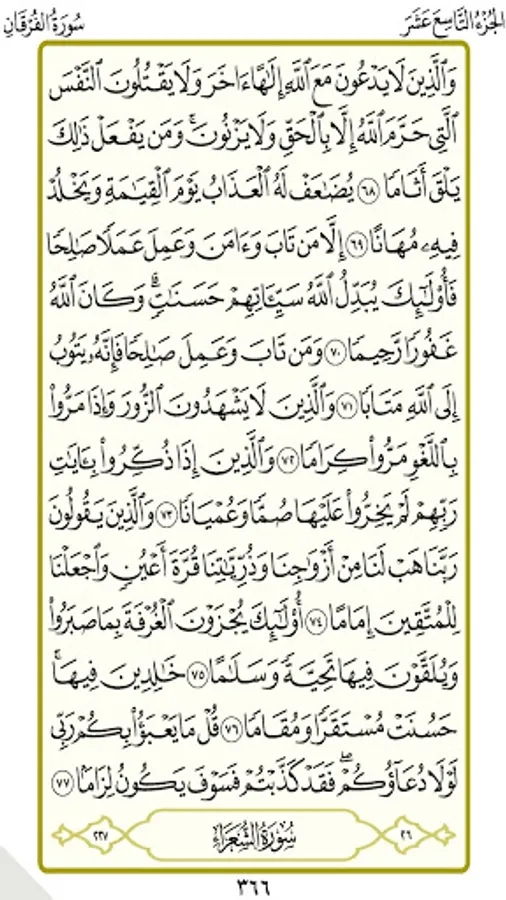 الجُزْءُ التَّاسِعَ عَشَرَ
سُورَةُ الفُرْقَانِ
وَٱلَّذِينَ لَا يَدْعُونَ مَعَ ٱللَّهِ إِلَٰهًا ءَاخَرَ وَلَا يَقْتُلُونَ ٱلنَّفْسَ
ٱلَّتِى حَرَّمَ ٱللَّهُ إِلَّا بِٱلْحَقِّ وَلَا يَزْنُونَ ۚ وَمَن يَفْعَلْ ذَٰلِكَ
يَلْقَ أَثَامًا ٦٨ يُضَٰعَفْ لَهُ ٱلْعَذَابُ يَوْمَ ٱلْقِيَٰمَةِ وَيَخْلُدْ
فِيهِۦ مُهَانًا ٦٩ إِلَّا مَن تَابَ وَءَامَنَ وَعَمِلَ عَمَلًا صَٰلِحًا
فَأُو۟لَٰٓئِكَ يُبَدِّلُ ٱللَّهُ سَيِّـَٔاتِهِمْ حَسَنَٰتٍ ۗ وَكَانَ ٱللَّهُ
غَفُورًا رَّحِيمًا ٧٠ وَمَن تَابَ وَعَمِلَ صَٰلِحًا فَإِنَّهُۥ يَتُوبُ
إِلَى ٱللَّهِ مَتَابًا ٧١ وَٱلَّذِينَ لَا يَشْهَدُونَ ٱلزُّورَ وَإِذَا مَرُّوا۟
بِٱللَّغْوِ مَرُّوا۟ كِرَامًا ٧٢ وَٱلَّذِينَ إِذَا ذُكِّرُوا۟ بِـَٔايَٰتِ
رَبِّهِمْ لَمْ يَخِرُّوا۟ عَلَيْهَا صُمًّا وَعُمْيَانًا ٧٣ وَٱلَّذِينَ يَقُولُونَ
رَبَّنَا هَبْ لَنَا مِنْ أَزْوَٰجِنَا وَذُرِّيَّٰتِنَا قُرَّةَ أَعْيُنٍ وَٱجْعَلْنَا
لِلْمُتَّقِينَ إِمَامًا ٧٤ أُو۟لَٰٓئِكَ يُجْزَوْنَ ٱلْغُرْفَةَ بِمَا صَبَرُوا۟
وَيُلَقَّوْنَ فِيهَا تَحِيَّةً وَسَلَٰمًا ٧٥ خَٰلِدِينَ فِيهَا ۚ
حَسُنَتْ مُسْتَقَرًّا وَمُقَامًا ٧٦ قُلْ مَا يَعْبَؤُا۟ بِكُمْ رَبِّى
لَوْلَا دُعَآؤُكُمْ ۖ فَقَدْ كَذَّبْتُمْ فَسَوْفَ يَكُونُ لِزَامًۢا ٧٧
٢٦ سُورَةُ الشُّعَرَاءِ ٢٢٧
٣٦٦